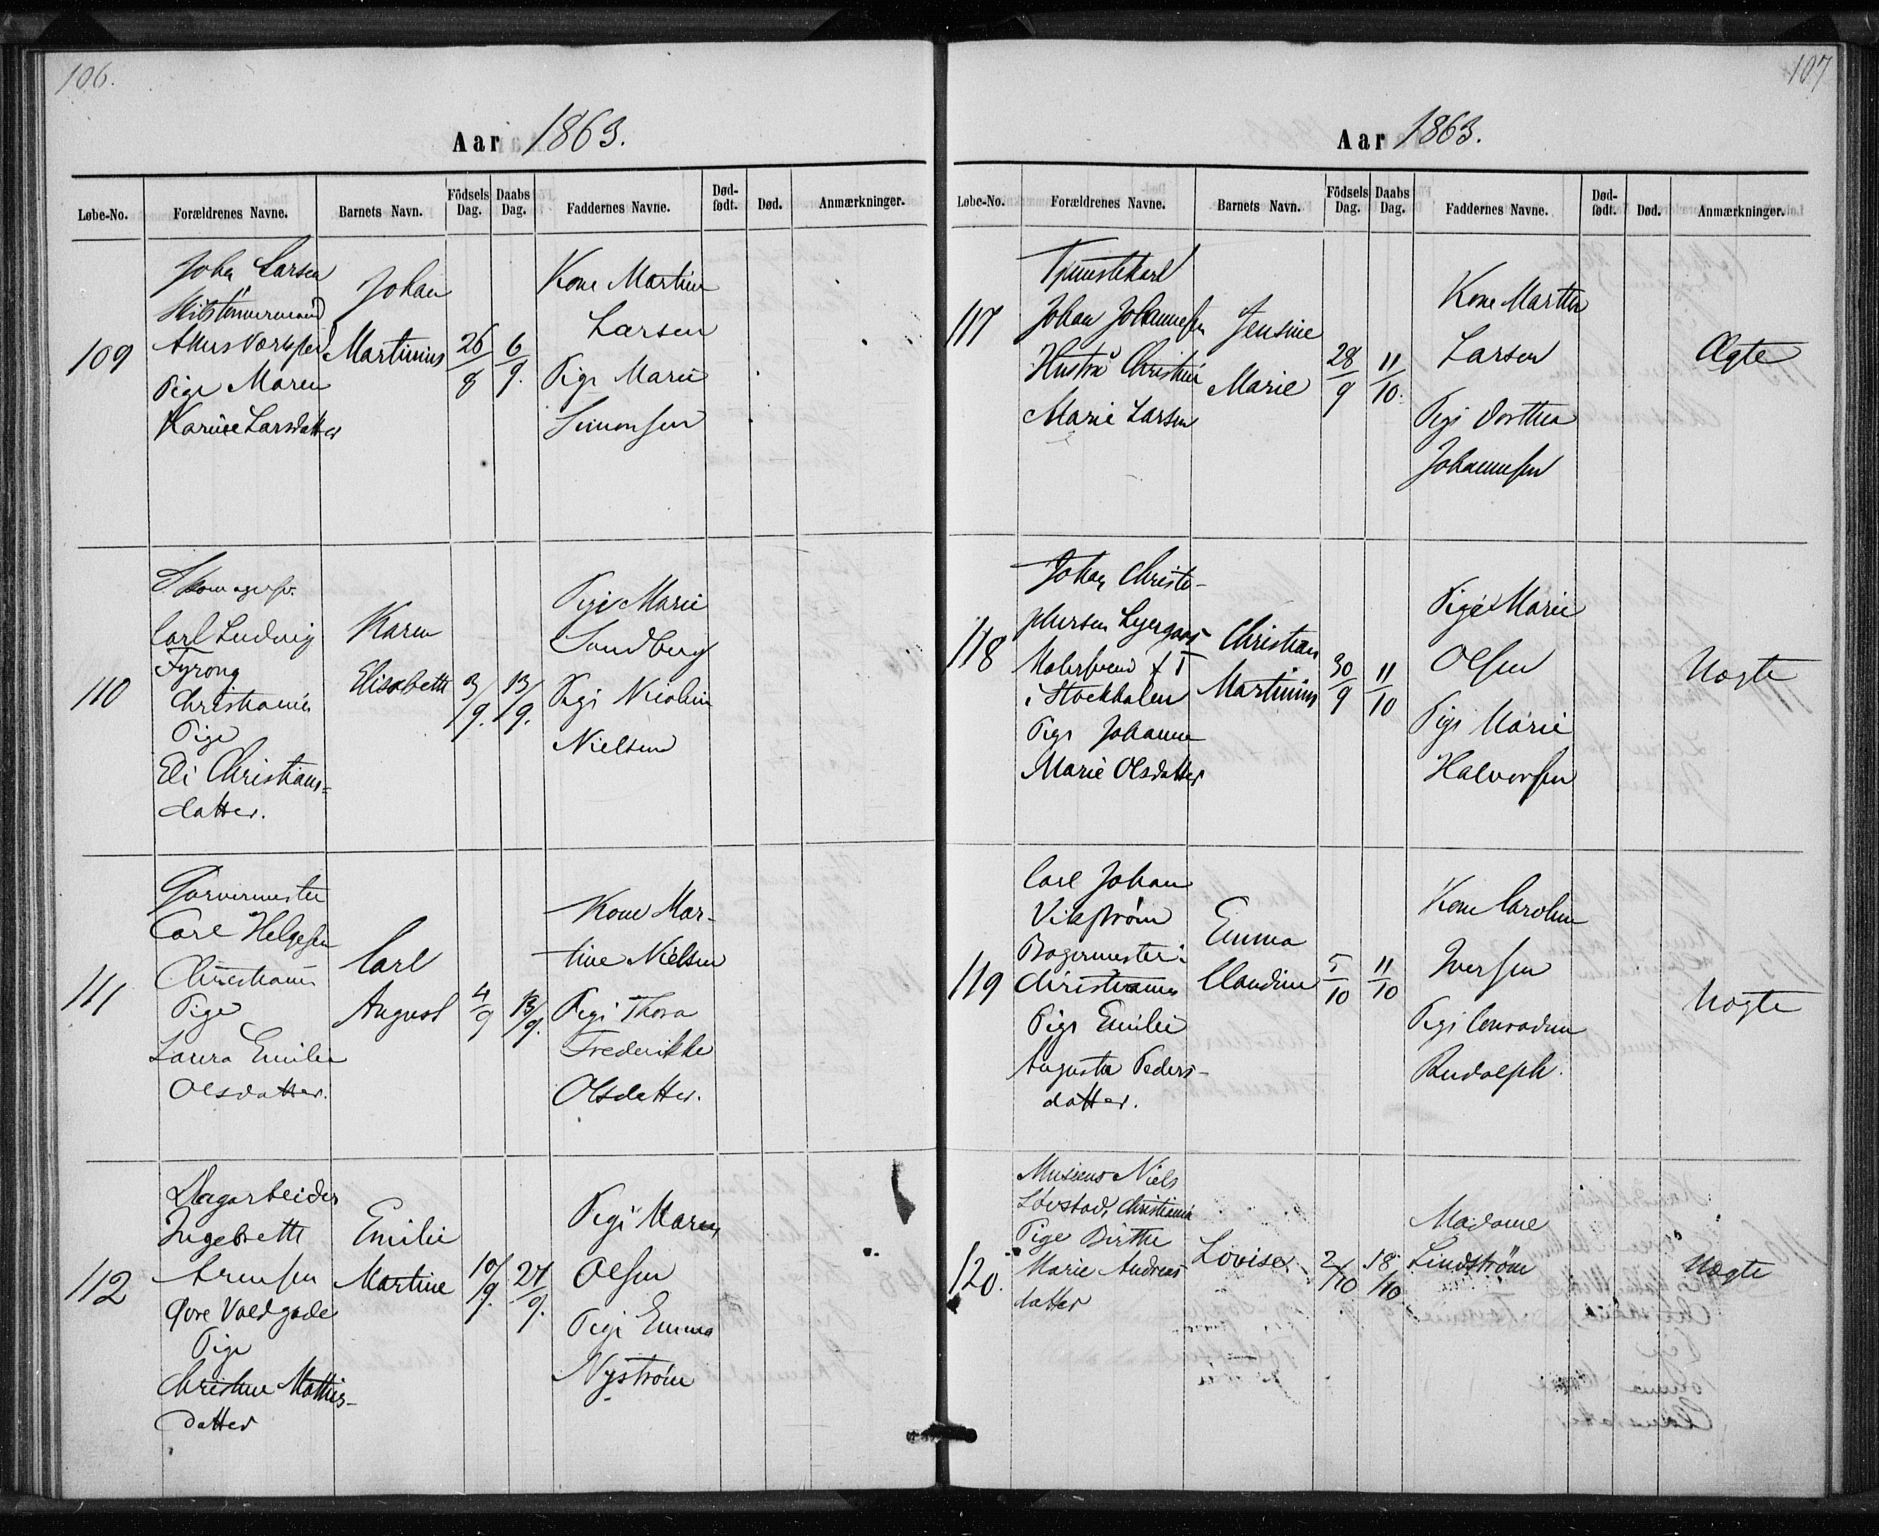 106.
Aar 1863.
Løbe-No. Forældrenes Navne. Barnets Navn. Födsels Dag. Daabs Dag. Faddernes Navne. Død-født. Død. Anmærkninger.
109
Johan Larsen
Akers
Pige Maren
Karine Larsdatter
Johan
Martinius
26/8
6/9.
Kone Martine
Larsen
Pige Marie
Simonsen
110
Skomagersv.
Carl Ludvig
Christiania
Pige
Eli Christians-
datter.
Karen
Elisabeth
3/9.
13/9.
Pige Marie
Sundberg
Pige Nicoline
Nielsen
111
Garvermester
Carl Helgesen
Christiania
Pige
Laura Emilie
Olsdatter.
Carl
August
4/9
13/9.
Kone Mar-
tine Nielsen
Pige Thora
Frederikke
Olsdatter.
112
Dagarbeider
Ingebreth
Arnesen
Øvre Voldgade
Pige
Christine Mathis-
datter
Emilie
Martine
10/9.
27/9.
Pige Maren
Olsen
Pige Emma
Nystrøm
107
Aar 1863.
Løbe-No. Forældrenes Navne. Barnets Navn. Födsels Dag. Daabs Dag. Faddernes Navne. Død-født. Død. Anmærkninger.
117
Tjenestekarl
Johan Johannesen
Hustru Christine
Marie Larsen
Jensine
Marie
28/9
11/10.
Kone Marthe
Larsen
Pige Dorthea
Johannesen
Ægte
118
Johan Christo-
phersen
Malersvend
i Stockholm
Pige Johanne
Marie Olsdatter
Christian
Martinius
30/9
11/10
Pige Marie
Olsen
Pige Marie
Halvorsen
Uægte
119
Carl Johan
Vikstrøm
Bagermester i
Christiania
Pige Emilie
Augusta Peders-
datter.
Emma
Claudine
5/10
11/10
Kone Caroline
Iversen
Pige Conradine
Rudolph.
Uægte
120.
Musicus Niels
Løvstad, Christiania
Pige Birthe
Marie Andreas
datter
Lovise
2/10
18/10
Madame
Lindstrøm
Uægte